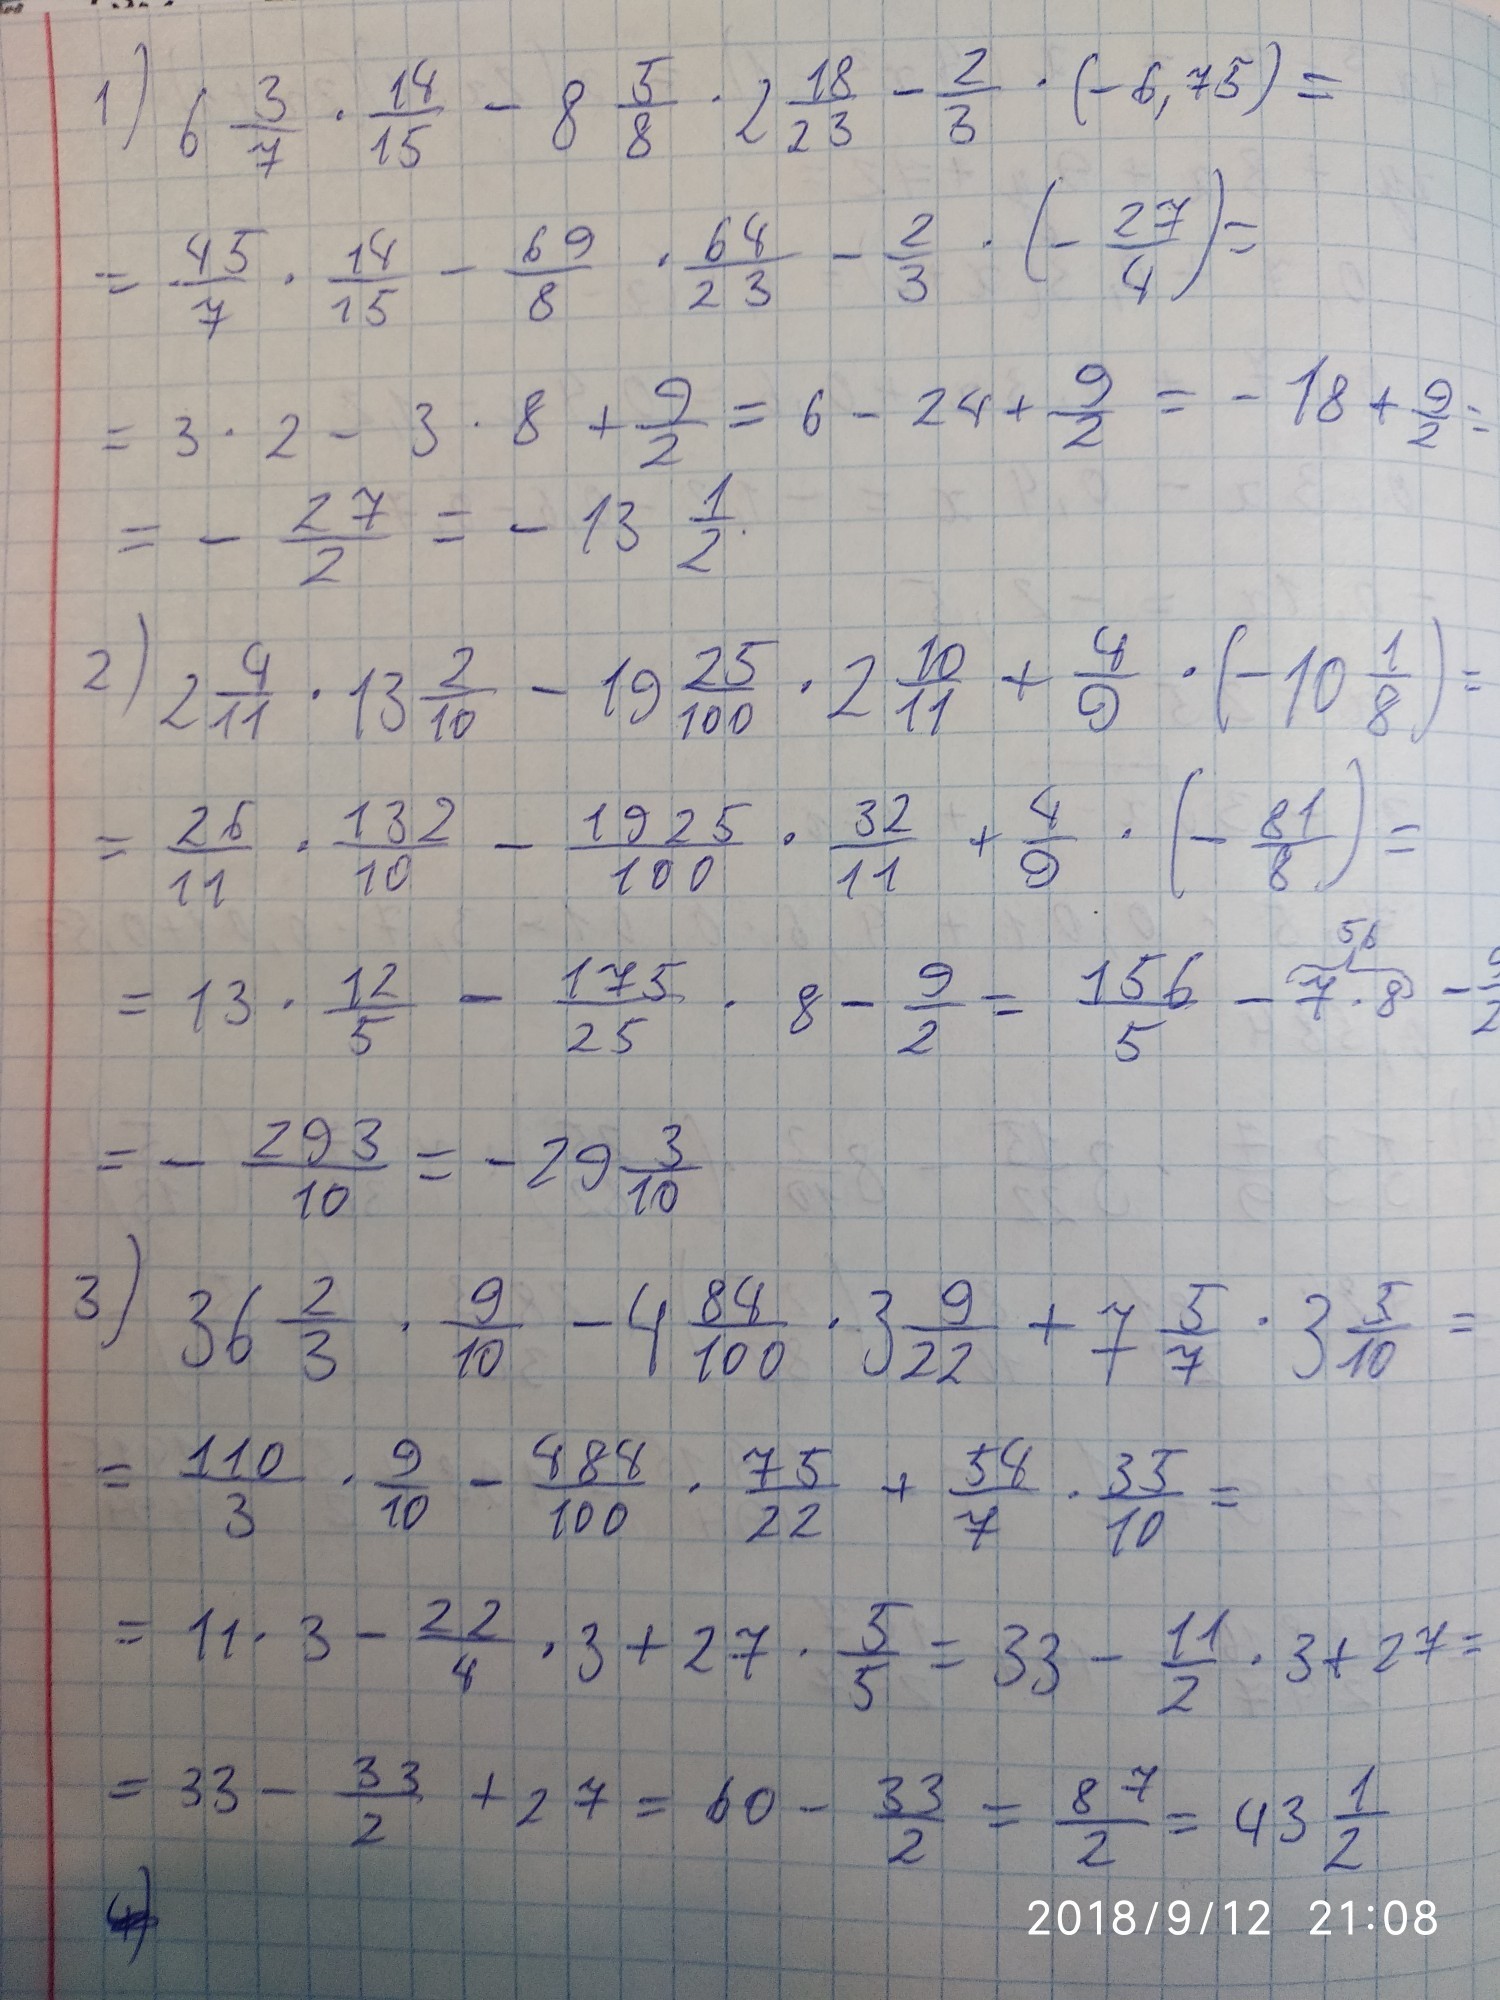 1) 6 3/7 · 14/15 - 8 5/8 · 2 18/23 - 2/3 · (-6,75) =
= 45/7 · 14/15 - 69/8 · 64/23 - 2/3 · (- 27/4) =
= 3 · 2 - 3 · 8 + 9/2 = 6 - 24 + 9/2 = - 18 + 9/2 =
= - 27/2 = - 13 1/2.
2) 2 4/11 · 13 2/10 - 19 25/100 · 2 10/11 + 4/9 · (-10 1/8) =
= 26/11 · 132/10 - 1925/100 · 32/11 + 4/9 · (- 81/8) =
56
= 13 · 12/5 - 175/25 · 8 - 9/2 = 156/5 - 7 · 8 - 9/2
= - 293/10 = - 29 3/10
3) 36 2/3 · 9/10 - 4 84/100 · 3 9/22 + 7 5/7 · 3 5/10 =
= 110/3 · 9/10 - 484/100 · 75/22 + 54/7 · 35/10 =
= 11 · 3 - 22/4 · 3 + 27 · 5/5 = 33 - 11/2 · 3 + 27 =
= 33 - 33/2 + 27 = 60 - 33/2 = 87/2 = 43 1/2
4)
2018/9/12 21:08